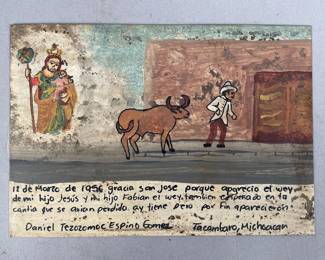 12 de Marzo de 1956 gracia san jose porque aparecio el wey
de mi hijo Jesús y mi hijo Fabian el wey tambien enpenado en la
cantia que se avian perdido. ay tiene pero por fin aparecieron.
Daniel Tezozomoc Espino Gomez Tacambaro, Michoacan